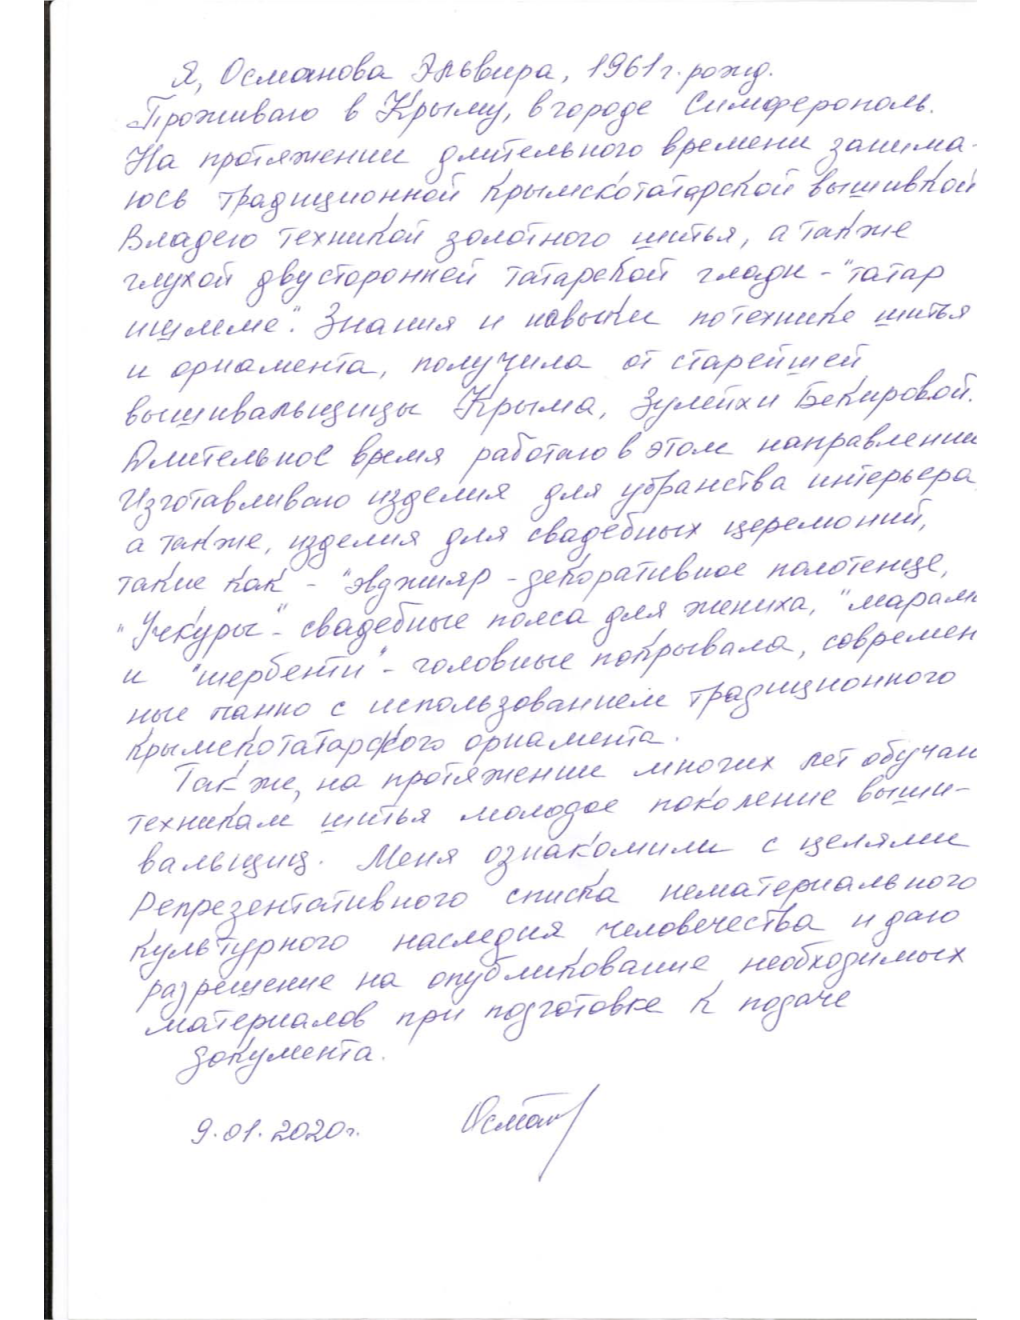 Я, Османова Эльвира, 1961 г. рожд.
Проживаю в Крыму, в городе Симферополь.
На протяжении длительного времени занима-
юсь традиционной крымскотатарской вышивкой
Владею техникой золотного шитья, а также
глухой двусторонней татарской глади - "татар
ишлеме". Знания и навыки по технике шитья
и орнамента, получила от старейшей
вышивальщицы Крыма, Зулейхи Бекировой.
Длительное время работаю в этом направлении
Изготавливаю изделия для убранства интерьера,
а также, изделия для свадебных церемоний,
такие как - "эвджияр - декоративное полотенце,
"Учкуры" - свадебные пояса для жениха, "марамы
и "шербенти" - головные покрывала, современ
ные панно с использованием традиционного
крымскотатарского орнамента.
Также, на протяжении многих лет обучаю
техникам шитья молодое поколение выши-
вальщиц. Меня ознакомили с целями
Репрезентативного списка нематериального
культурного наследия человечества и даю
разрешение на опубликование необходимых
материалов при подготовке к подаче
документа.
9.01.2020г. Осман